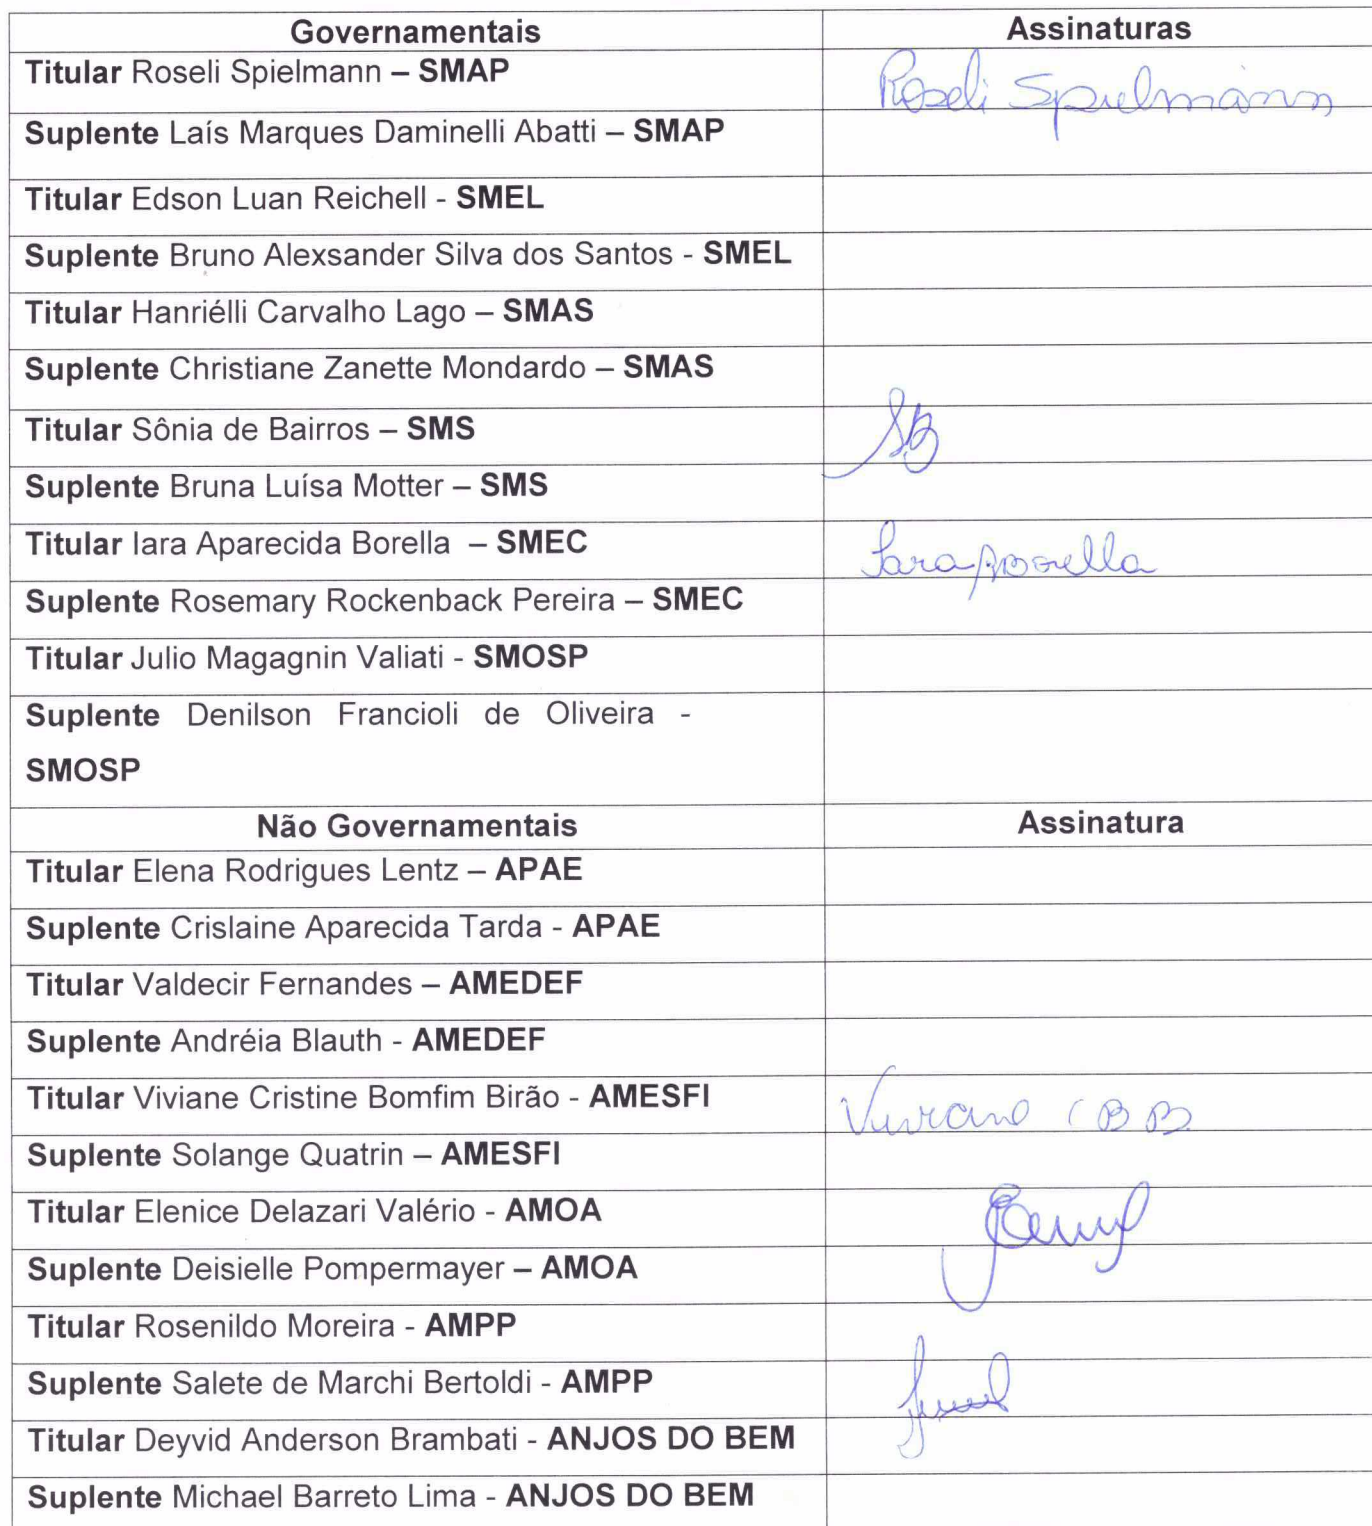 Governamentais Assinaturas
Titular Roseli Spielmann – SMAP Roseli Spielmann
Suplente Laís Marques Daminelli Abatti – SMAP
Titular Edson Luan Reichell - SMEL
Suplente Bruno Alexsander Silva dos Santos - SMEL
Titular Hanriélli Carvalho Lago – SMAS
Suplente Christiane Zanette Mondardo – SMAS
Titular Sônia de Bairros – SMS SB
Suplente Bruna Luísa Motter – SMS
Titular Iara Aparecida Borella – SMEC Iara Ap Borella
Suplente Rosemary Rockenback Pereira – SMEC
Titular Julio Magagnin Valiati - SMOSP
Suplente Denilson Francioli de Oliveira -
SMOSP
Não Governamentais Assinatura
Titular Elena Rodrigues Lentz – APAE
Suplente Crislaine Aparecida Tarda - APAE
Titular Valdecir Fernandes – AMEDEF
Suplente Andréia Blauth - AMEDEF
Titular Viviane Cristine Bomfim Birão - AMESFI Viviane C B B.
Suplente Solange Quatrin – AMESFI
Titular Elenice Delazari Valério - AMOA
Suplente Deisielle Pompermayer – AMOA
Titular Rosenildo Moreira - AMPP
Suplente Salete de Marchi Bertoldi - AMPP
Titular Deyvid Anderson Brambati - ANJOS DO BEM
Suplente Michael Barreto Lima - ANJOS DO BEM